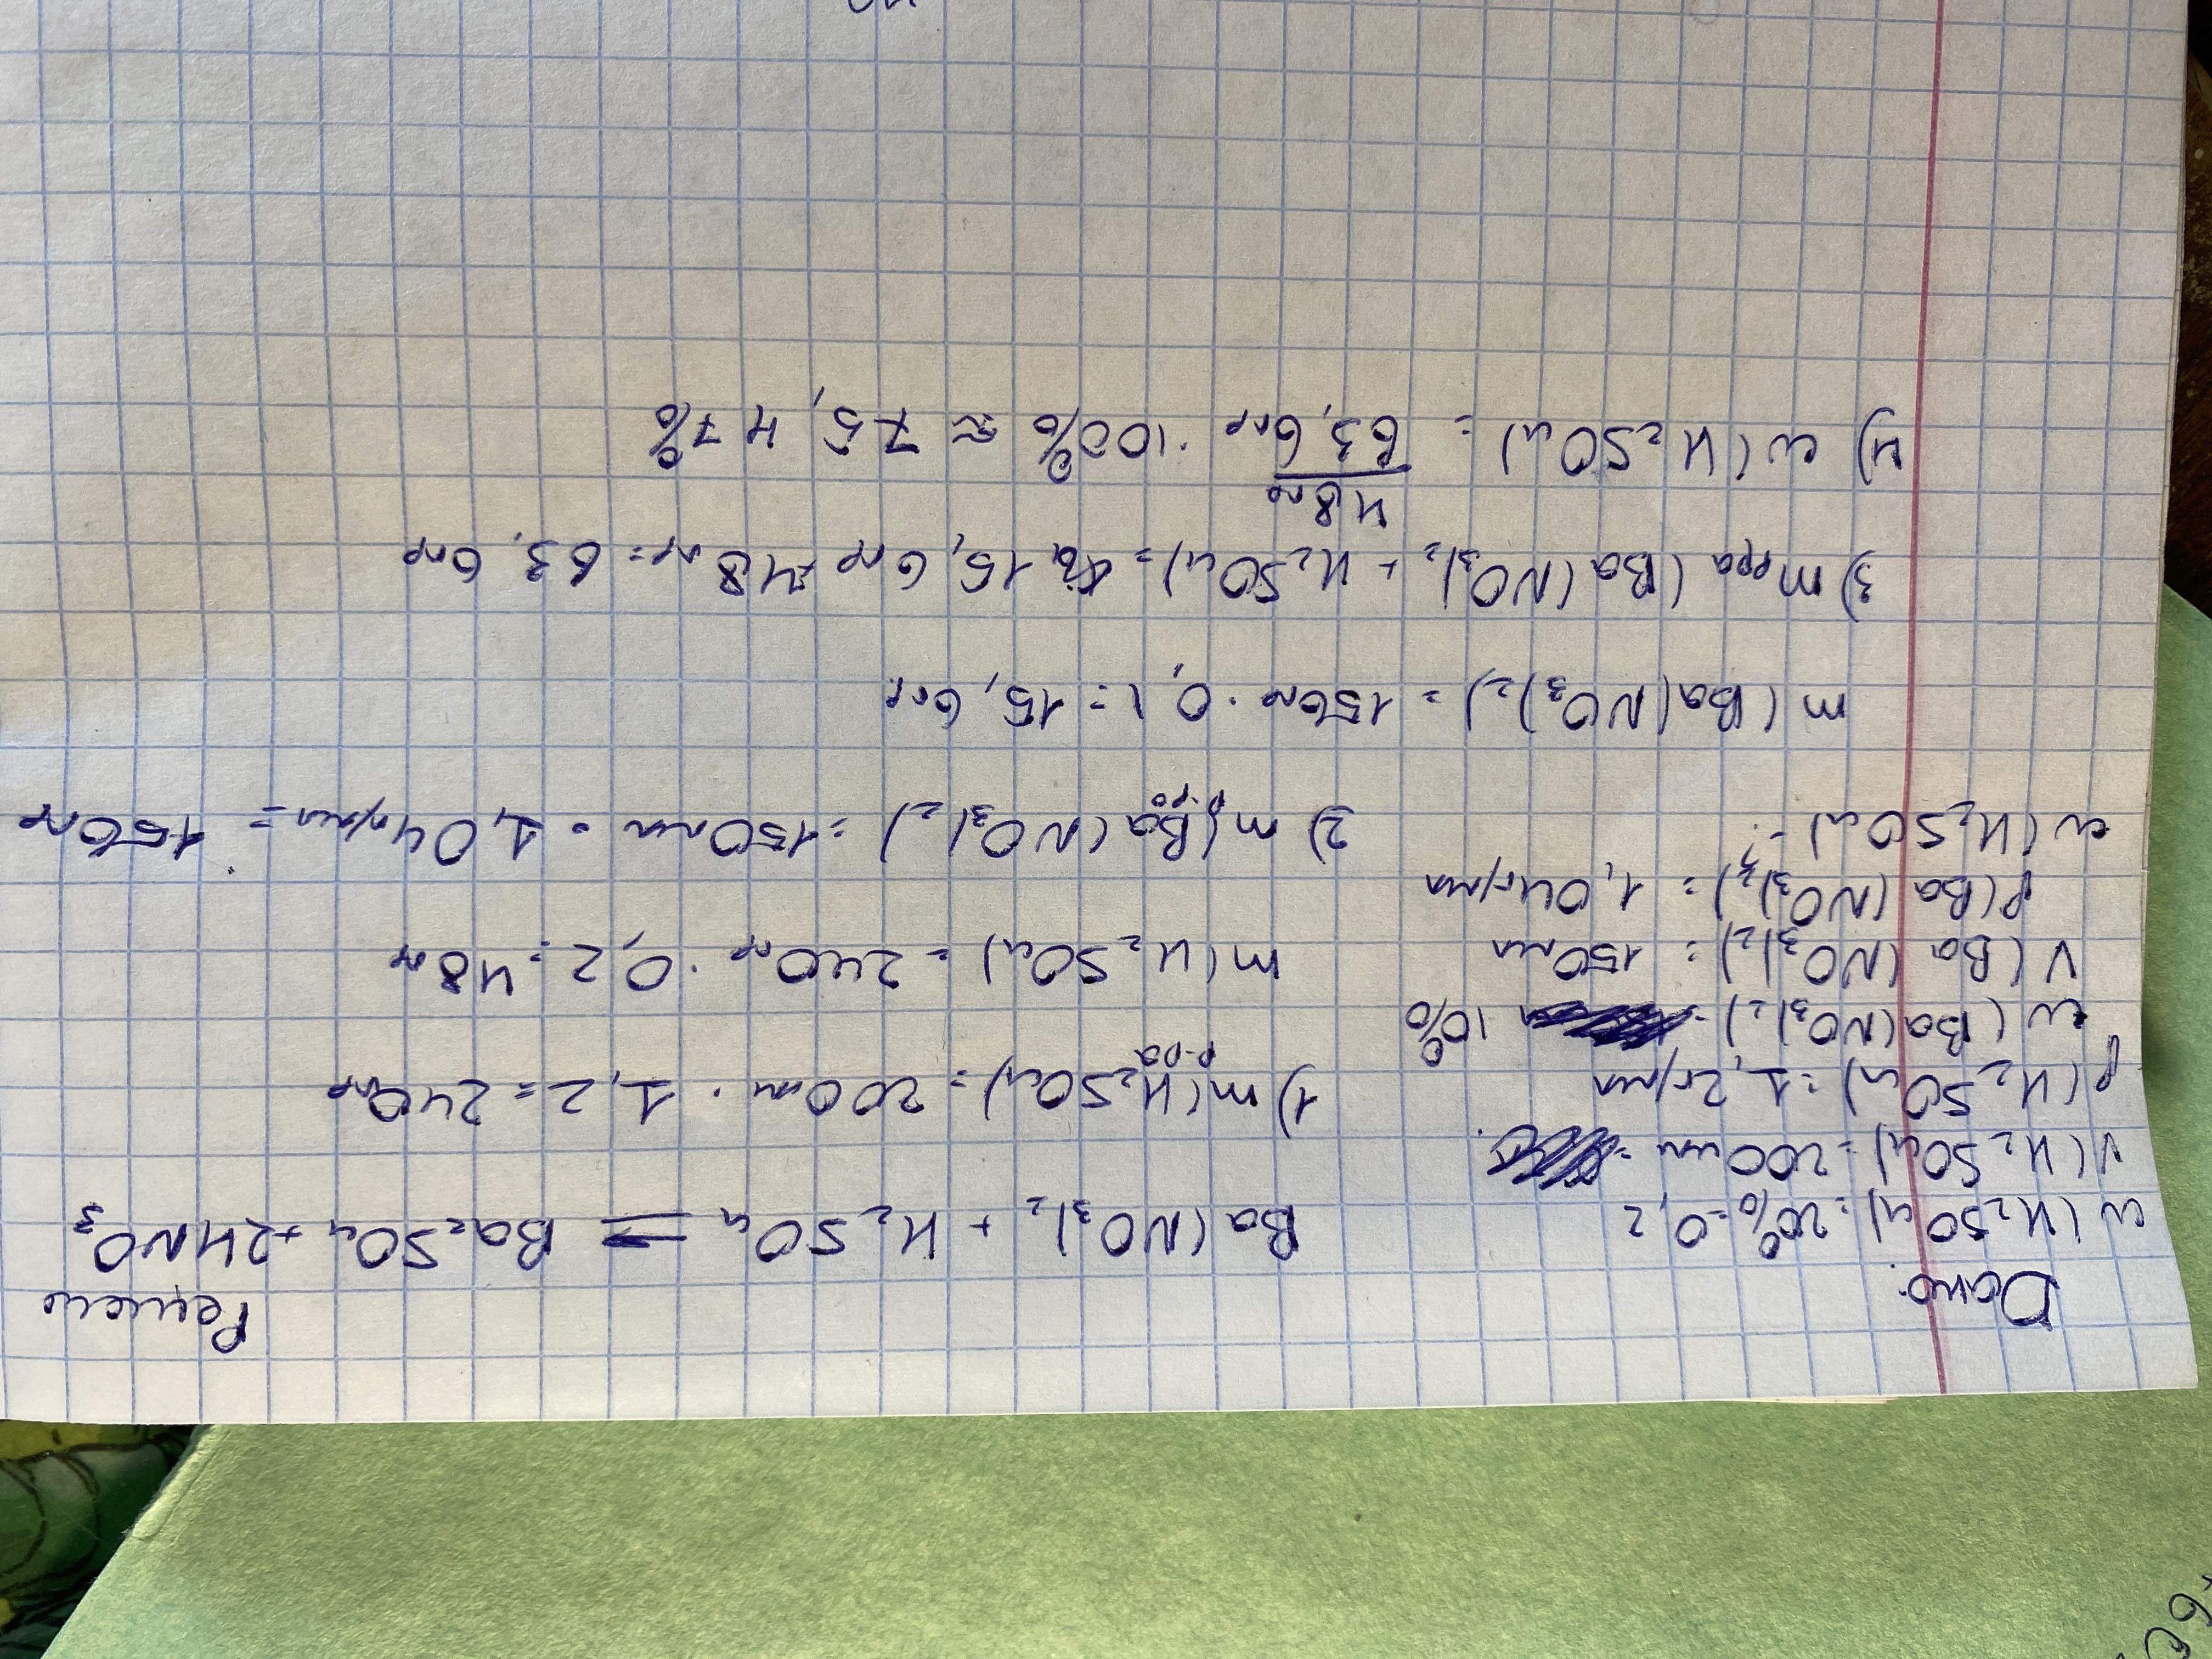 Дано: Решени
w(H₂SO₄)=20%=0,2
V(H₂SO₄)=200мл =
ρ(H₂SO₄)=1,2г/мл
w(Ba(NO₃)₂)= 10%
V(Ba(NO₃)₂)=150мл
ρ(Ba(NO₃)₂)=1,04г/мл
w(H₂SO₄)-?
Ba(NO₃)₂ + H₂SO₄ = Ba₂SO₄ +2HNO₃
1) m р-ра (H₂SO₄) = 200мл · 1,2 = 240гр
m(H₂SO₄) = 240гр · 0,2 = 48гр
2) m р-ра (Ba(NO₃)₂) = 150мл · 1,04г/мл = 156гр
m(Ba(NO₃)₂) = 156гр · 0,1 = 15,6гр
3) m рра (Ba(NO₃)₂ + H₂SO₄) = 15,6гр + 48гр = 63,6гр
4) w(H₂SO₄) = 48гр / 63,6гр · 100% ≈ 75,47%